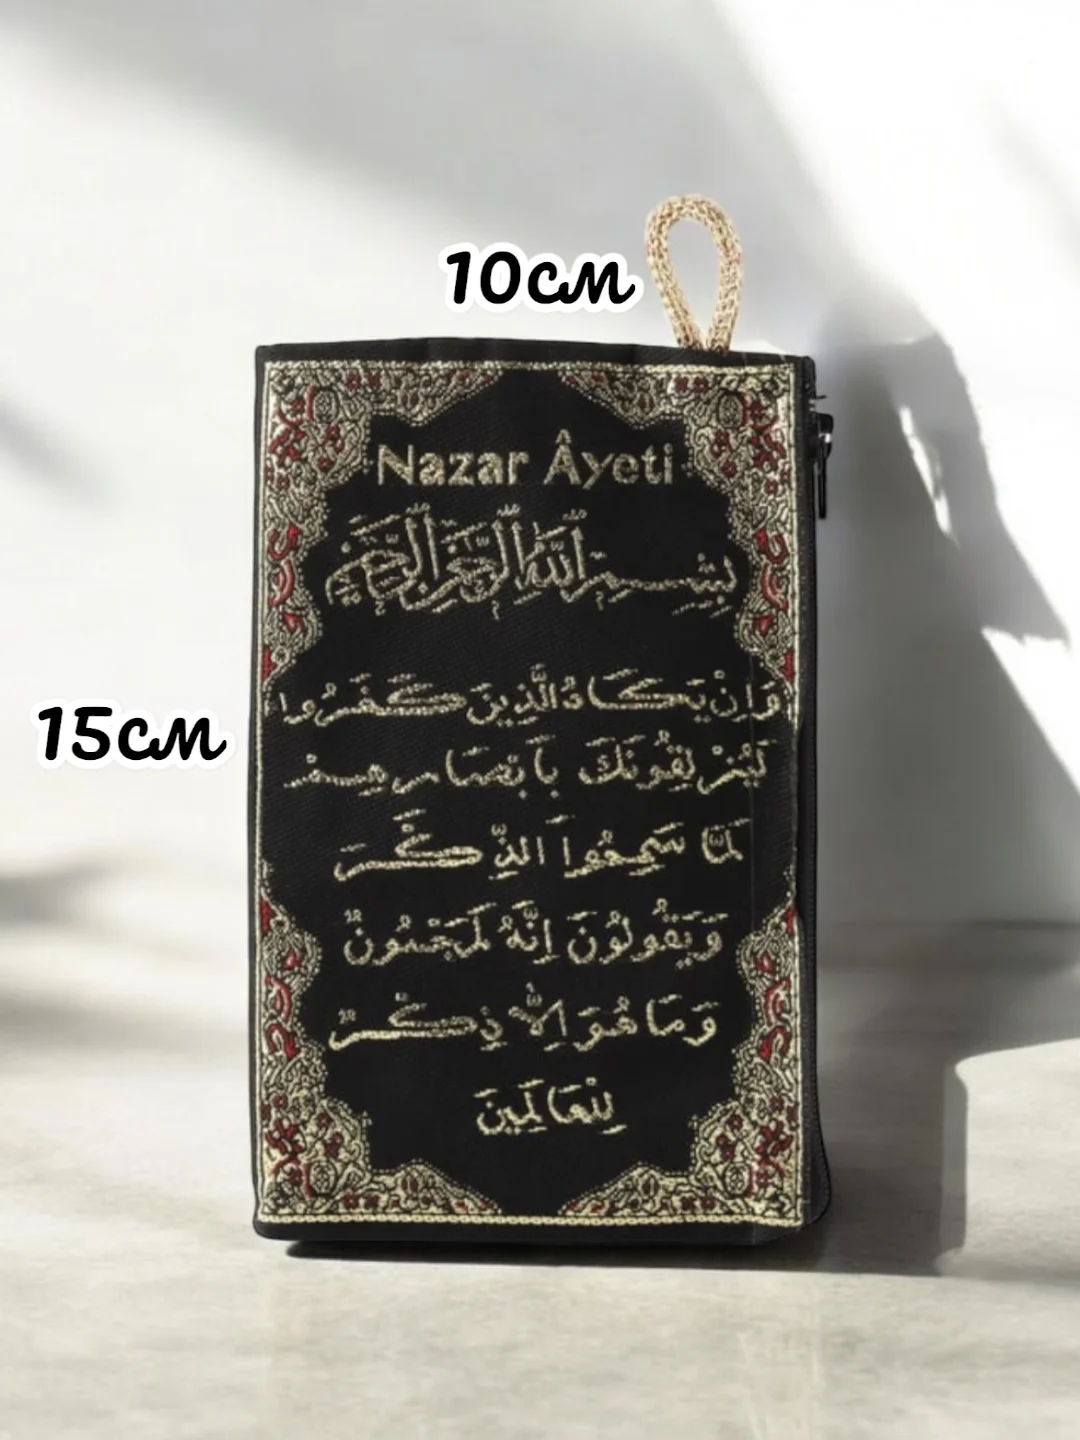 10см
Nazar Âyeti
بِسْمِ اللّٰهِ الرَّحْمٰنِ الرَّحِيمِ
15см
وَاِنْ يَكَادُ الَّذِينَ كَفَرُوا
لَيُزْلِقُونَكَ بِاَبْصَارِهِمْ
لَمَّا سَمِعُوا الذِّكْرَ
وَيَقُولُونَ اِنَّهُ لَمَجْنُونٌ
وَمَا هُوَ اِلَّا ذِكْرٌ
لِلْعَالَمِينَ